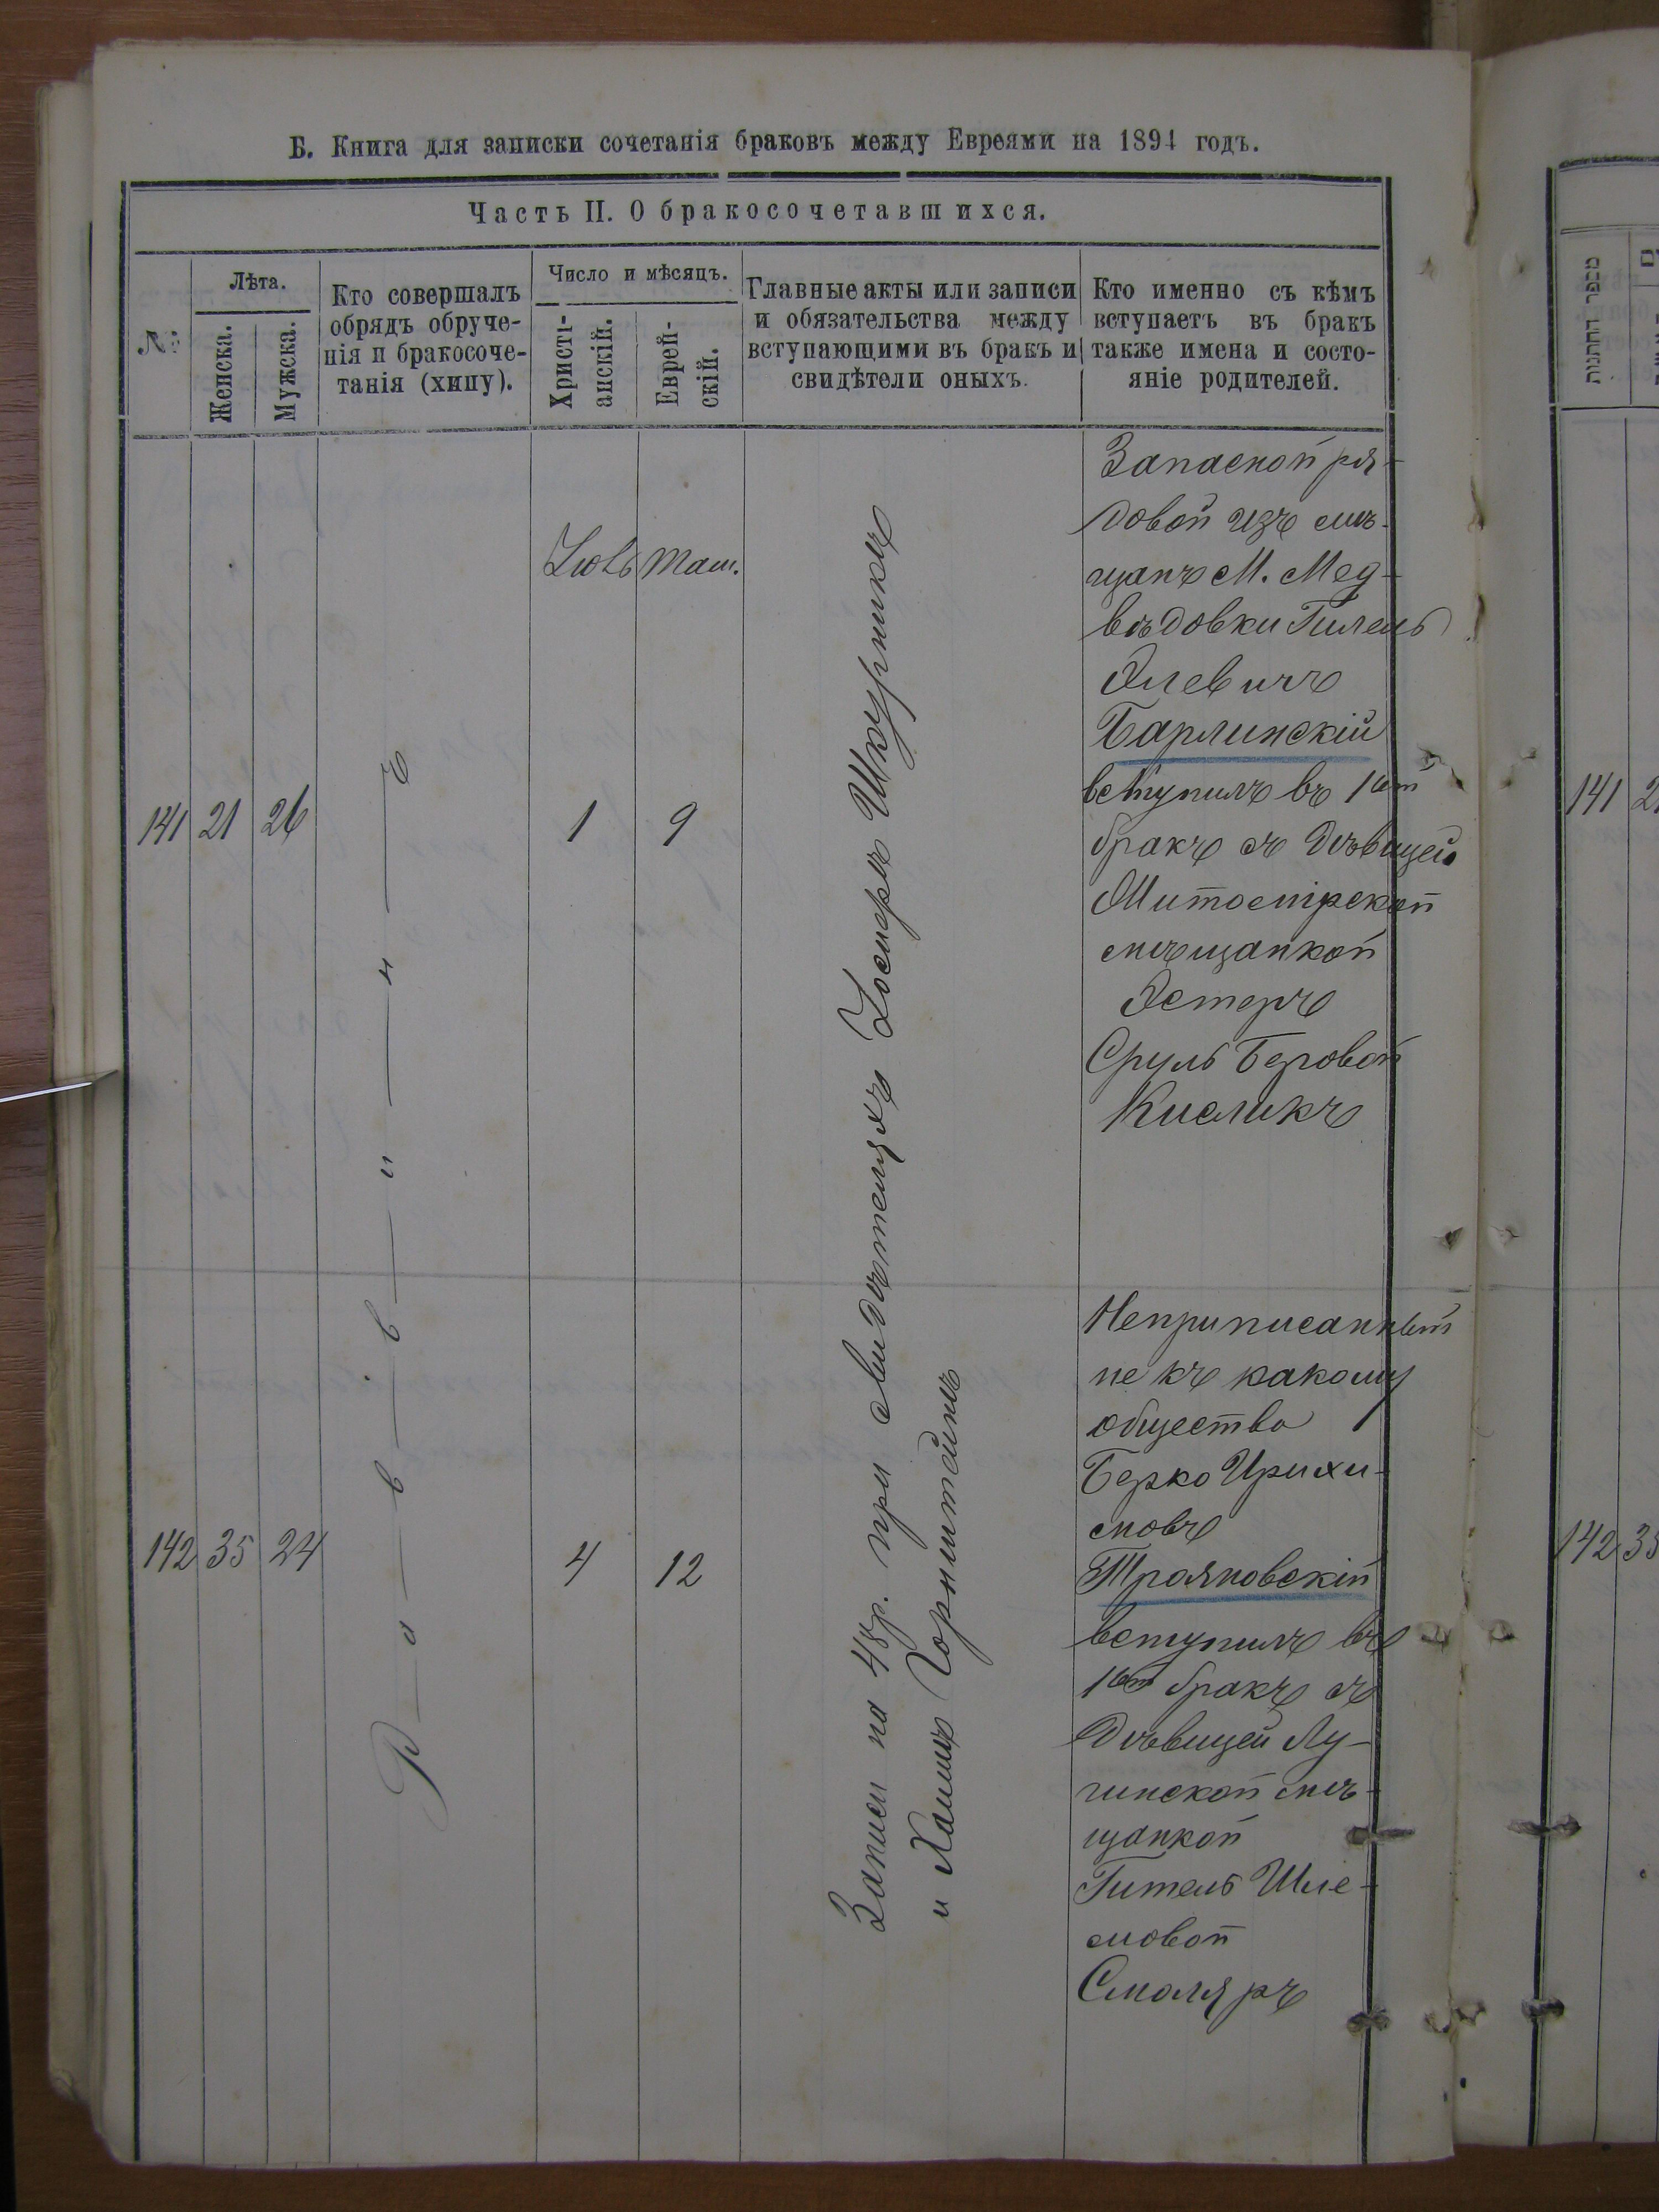 Б. Книга для записки сочетанія браковъ между Евреями на 1894 годъ.
Часть II. О бракосочетавшихся.
№
Лѣта.
Женска.
Мужска.
Кто совершалъ
обрядъ обруче-
нія и бракосоче-
танія (хипу).
Число и мѣсяцъ.
Христі-
анскій.
Еврей-
скій.
Главные акты или записи
и обязательства между
вступающими въ бракъ и
свидѣтели оныхъ.
Кто именно съ кѣмъ
вступаетъ въ бракъ
также имена и состо-
яніе родителей.
Раввинъ
Записи на 48р. при свидѣтеляхъ Іосифъ Шкурникъ
и Хаимъ Горнштейнъ
Іюль
Там.
141
21
26
1
9
Запасной ря-
довой изъ мѣ-
щанъ М. Мед-
вѣдовки Гилель
Элевичъ
Барлинскій
вступилъ въ 1ый
бракъ съ дѣвицей
Житомірской
мѣщанкой
Эстеръ
Сруль Беровой
Кисликъ
142
35
24
4
12
Неприписанный
не къ какому
общество
Берко Ирихи-
мовъ
Трояновскій
вступилъ въ
1ый бракъ съ
дѣвицей Лу-
гинской мѣ-
щанкой
Гитель Шле-
мовой
Смоляръ
מספר החתונות
141
142